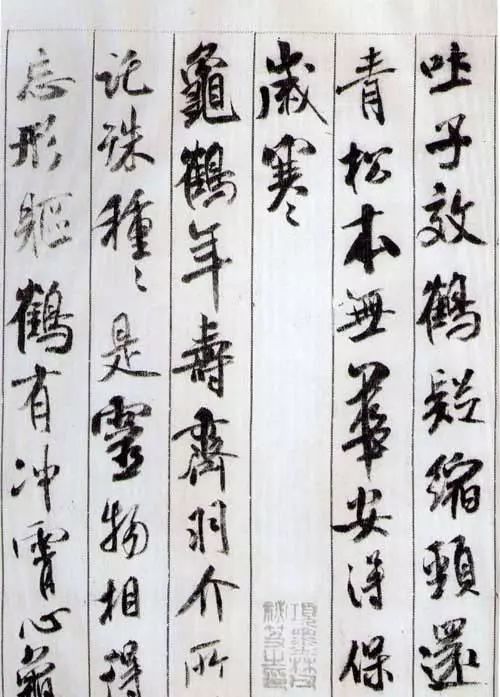 吐子效鶴疑縮頸還
青松本無華安得保
歲寒〻
龜鶴年壽齊羽介所
託殊種〻是靈物相得
忘形軀鶴有冲霄心龜